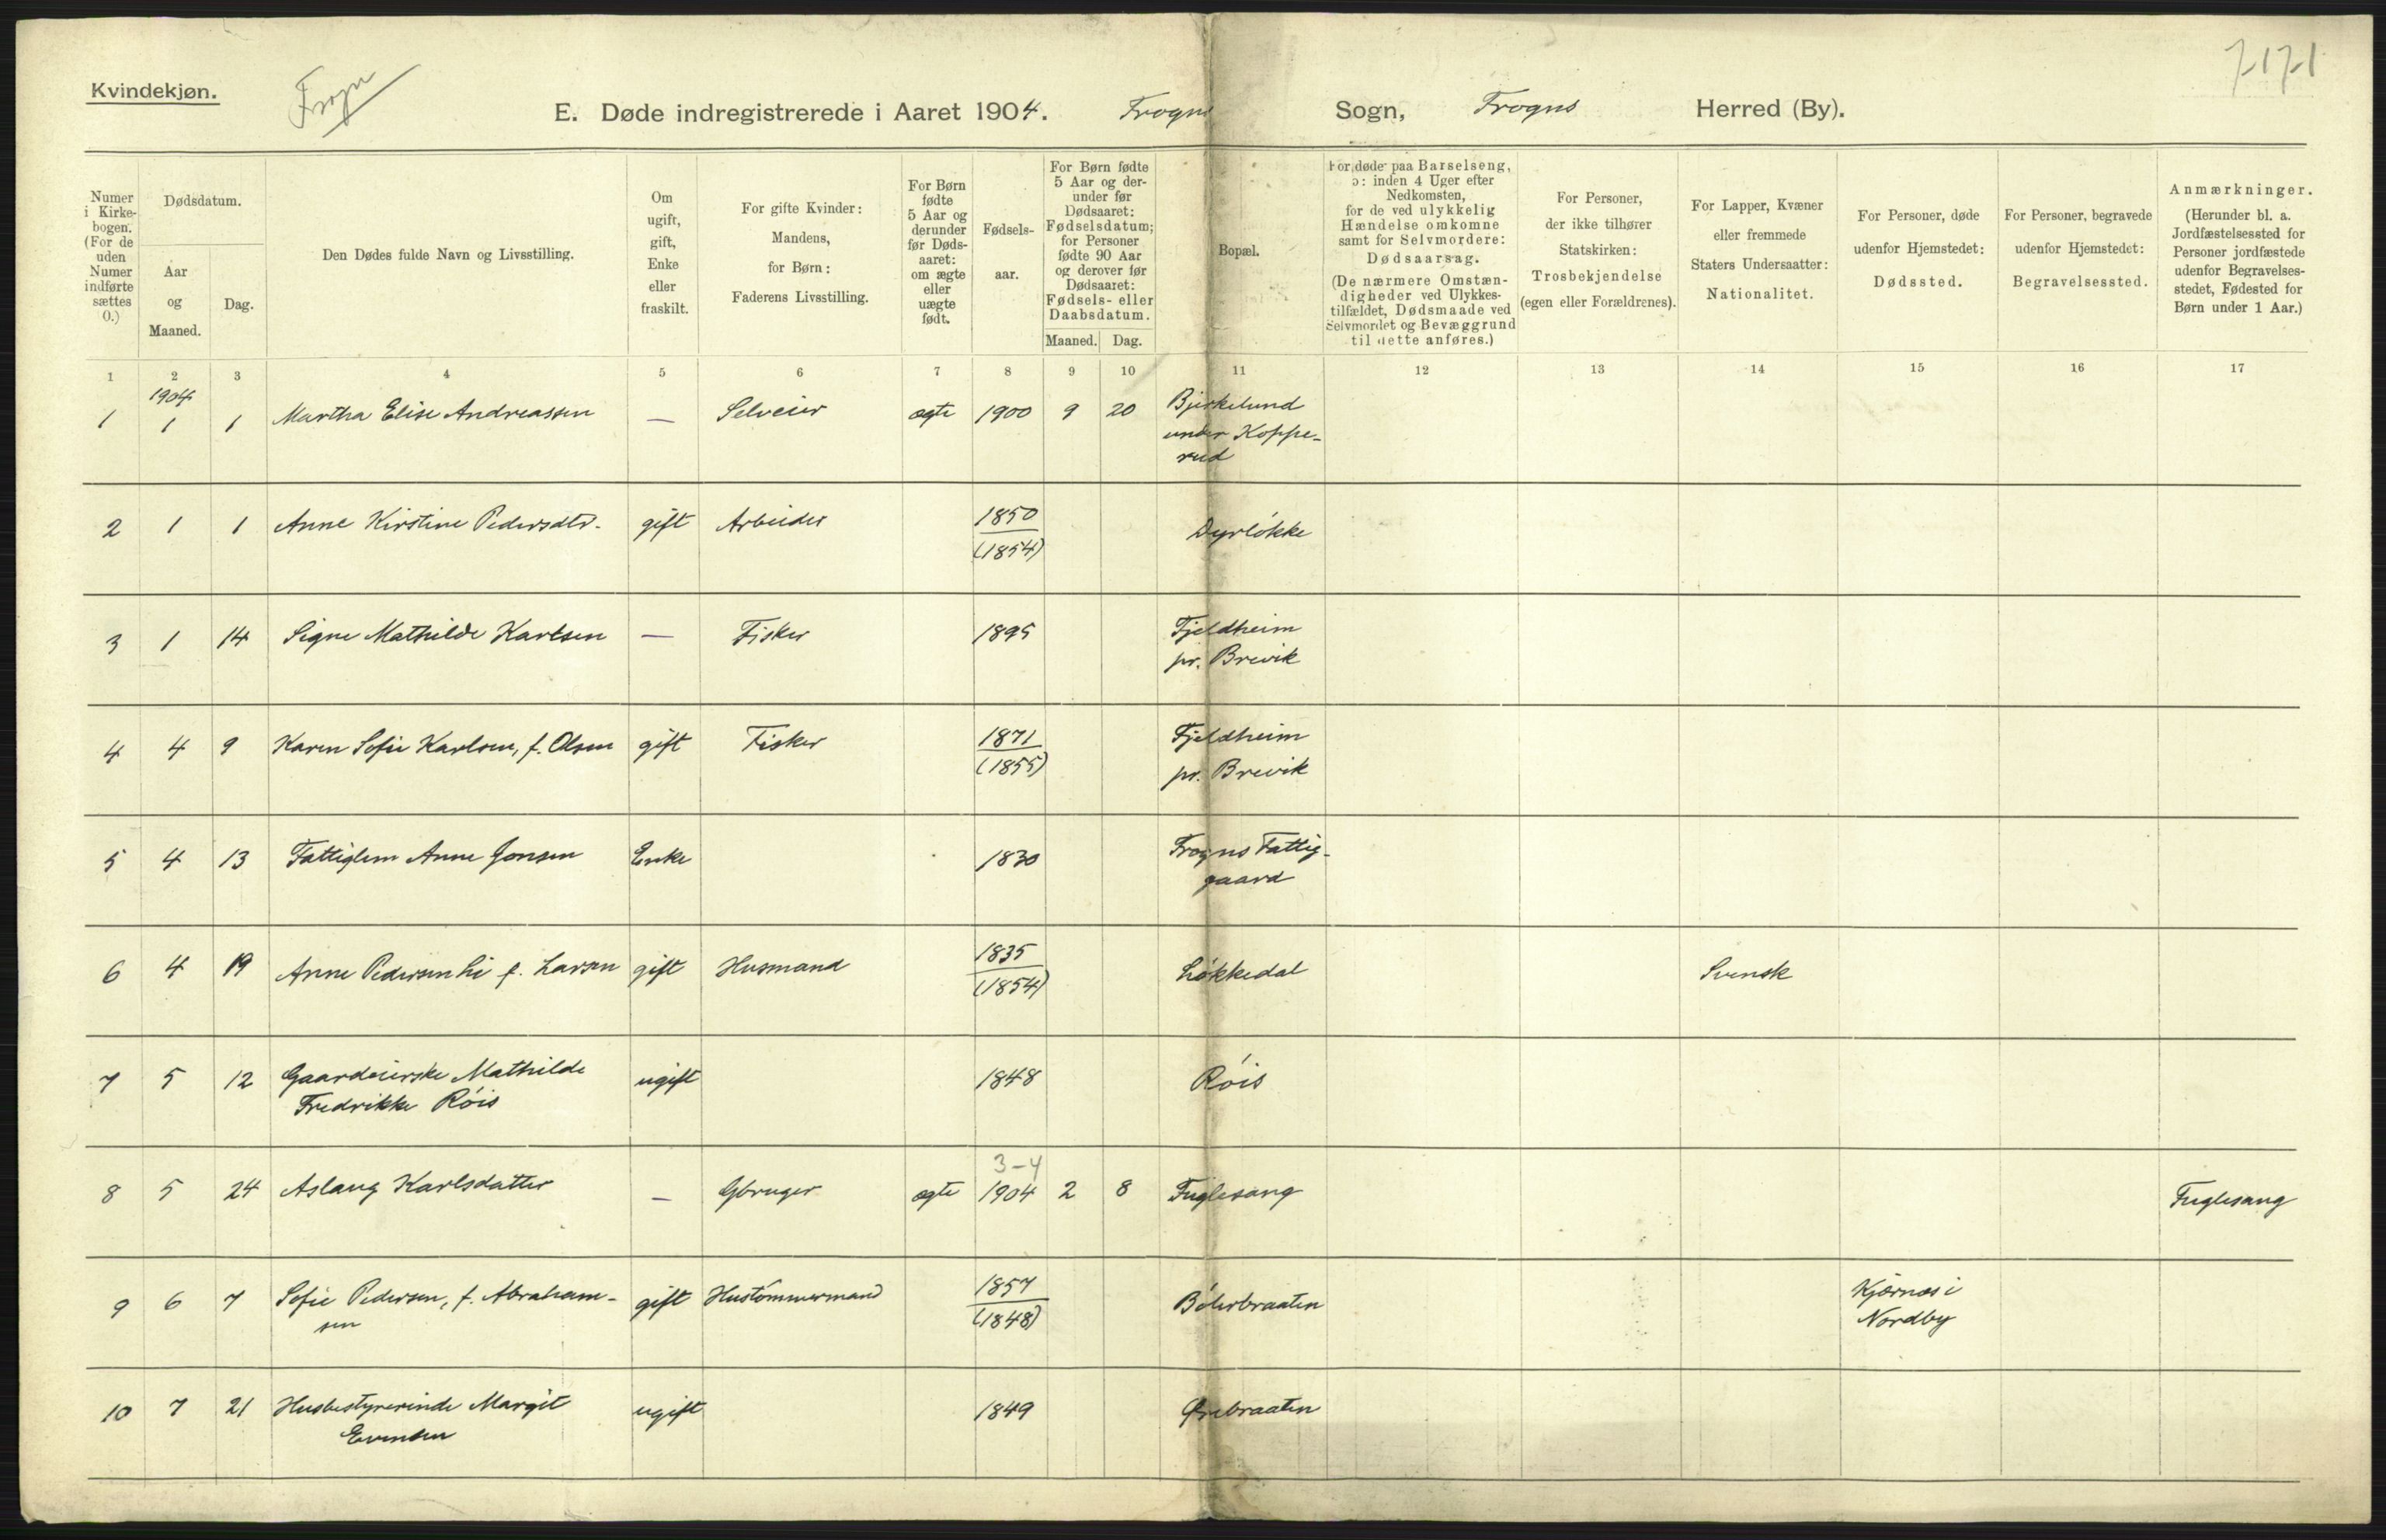 Kvindekjøn.
Frogn
E. Døde indregistrerede i Aaret 1904. Frogns Sogn, Frogns Herred (By).
7171
Numer i Kirkebogen. (For de uden Numer indførte sættes 0.)
Dødsdatum.
Aar og Maaned.
Dag.
Den Dødes fulde Navn og Livsstilling.
Om ugift, gift, Enke eller fraskilt.
For gifte Kvinder: Mandens, for Børn: Faderens Livsstilling.
For Børn fødte 5 Aar og derunder før Dødsaaret: om ægte eller uægte født.
Fødselsaar.
For Børn fødte 5 Aar og derunder før Dødsaaret: Fødselsdatum; for Personer fødte 90 Aar og derover før Dødsaaret: Fødsels- eller Daabsdatum.
Maaned. Dag.
Bopæl.
For døde paa Barselseng, ɔ: inden 4 Uger efter Nedkomsten, for de ved ulykkelig Hændelse omkomne samt for Selvmordere: Dødsaarsag.
(De nærmere Omstændigheder ved Ulykkestilfældet, Dødsmaade ved Selvmordet og Bevæggrund til dette anføres.)
For Personer, der ikke tilhører Statskirken: Trosbekjendelse (egen eller Forældrenes).
For Lapper, Kvæner eller fremmede Staters Undersaatter: Nationalitet.
For Personer, døde udenfor Hjemstedet: Dødssted.
For Personer, begravede udenfor Hjemstedet: Begravelsessted.
Anmærkninger. (Herunder bl. a. Jordfæstelsessted for Personer jordfæstede udenfor Begravelsesstedet, Fødested for Børn under 1 Aar.)
1 2 3 4 5 6 7 8 9 10 11 12 13 14 15 16 17
1904
1 1 1 Martha Elise Andreassen — Selveier ægte 1900 9 20 Bjerkelund
under Koppe-
rud
2 1 1 Anne Kirstine Pedersdtr. gift Arbeider 1850 Dyrløkke
(1854)
3 1 14 Signe Mathilde Karlsen — Fisker 1895 Fjeldheim
pr. Brevik
4 4 9 Karen Sofie Karlsen, f. Olsen gift Fisker 1871 Fjeldheim
(1855) pr. Brevik
5 4 13 Fattiglem Anne Jonsen Enke 1830 Frogns Fattig-
gaard
6 4 19 Anne Pedersen f. Larsen gift Husmand 1835 Løkkedal Svensk
(1854)
7 5 12 Gaardeierske Mathilde ugift 1848 Røis
Fredrikke Røis
3-4
8 5 24 Aslaug Karlsdatter — Gbruger ægte 1904 2 8 Fuglesang Fuglesang
9 6 7 Sofie Pedersen, f. Abraham- gift Hustømmermand 1857 Bølerbraaten Kjærnæs i
sen (1848) Nordby
10 7 21 Husbestyrerinde Margit ugift 1849 Ørebraaten
Evensen